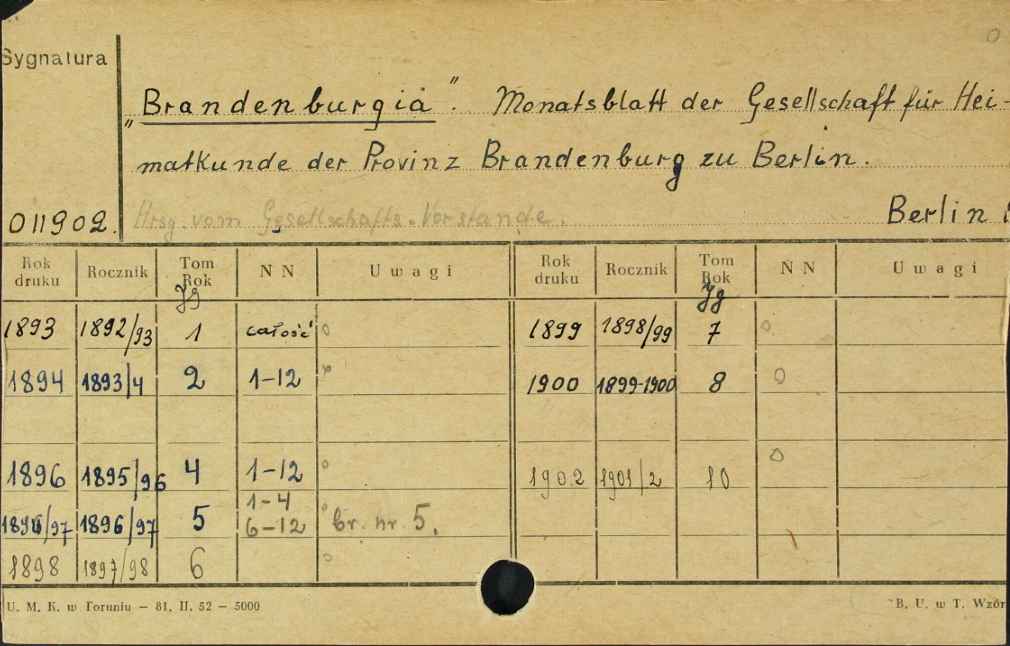 Sygnatura
„Brandenburgia". Monatsblatt der Gesellschaft für Hei-
matkunde der Provinz Brandenburg zu Berlin.
011902. Hrsg. vom Gesellschafts-Vorstande. Berlin
Rok druku Rocznik Tom Rok NN Uwagi Rok druku Rocznik Tom Rok NN Uwagi
Jg Jg
1893 1892/93 1 całość 1899 1898/99 7
1894 1893/4 2 1-12 1900 1899-1900 8
1896 1895/96 4 1-12 1902 1901/2 10
1896/97 1896/97 5 1-4 6-12 br. nr. 5.
1898 1897/98 6
U. M. K. w Toruniu — 81. II. 52 — 5000 B. U. w T. Wzór